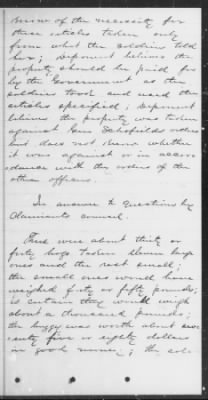 knew of the necessity for
these articles taken only
from what the soldiers told
her; Deponent believes the
property should be paid for
by the Government as the
soldiers took and used the
articles specified; Deponent
believes the property was taken
against Gen Schofields orders
but does not know whether
it was against or in accor
dance with the orders of the
other officers.
In answer to questions by
Claimants counsel.
There were about thirty or
forty hogs taken eleven large
ones and the rest small;
the small ones would have
weighed forty or fifty pounds;
is certain they would weigh
about a thousand pounds;
the buggy was worth about sev
enty five or eighty dollars
in good money; the